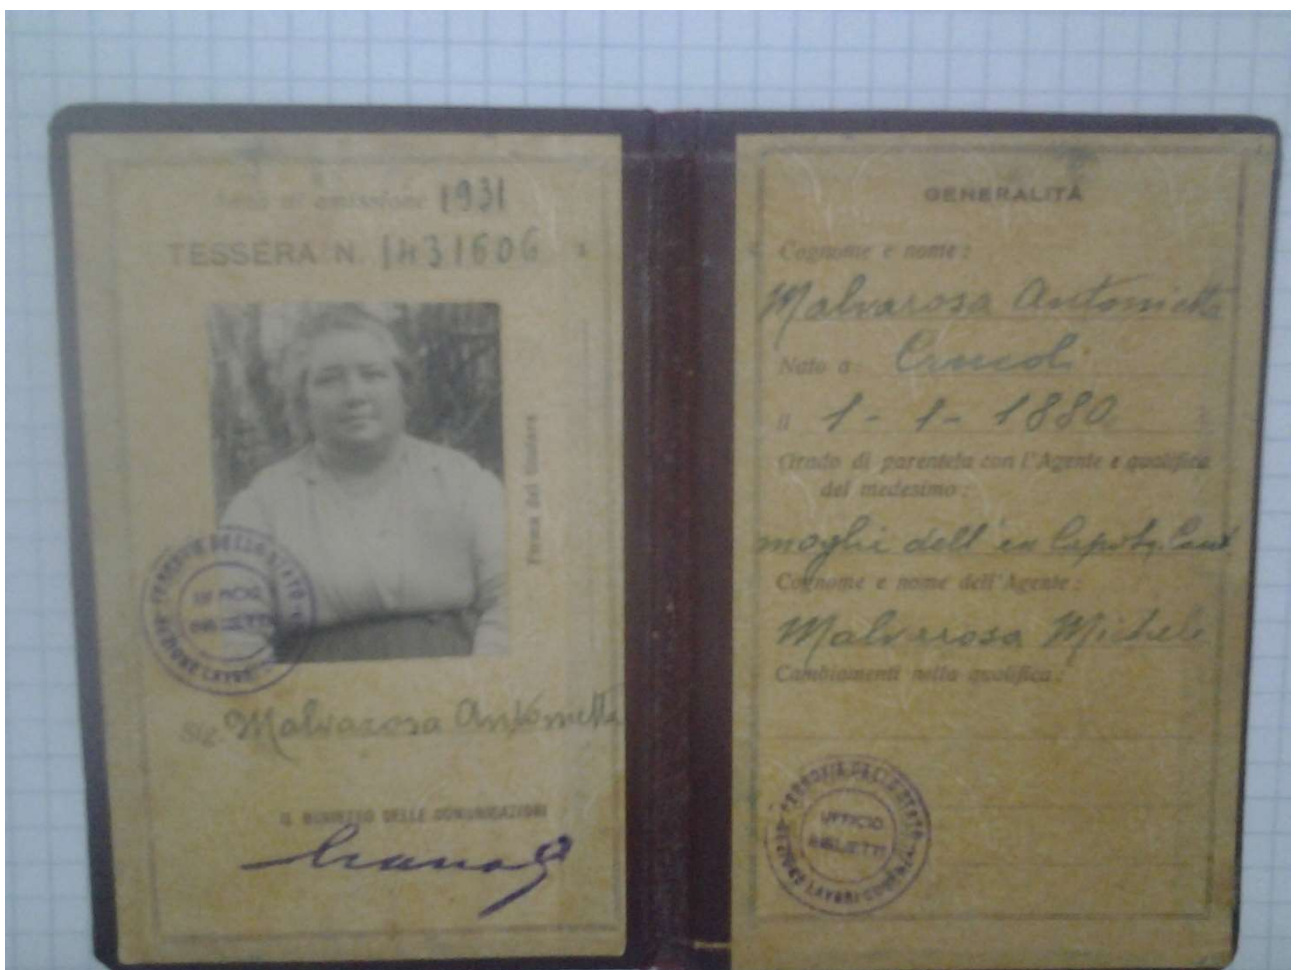 Anno di emissione 1931
TESSERA N. 1431606
Firma del titolare
FERROVIE DELLO STATO
UFFICIO
BIGLIETTI
SEZIONE LAVORI
Sig. Malvarosa Antonietta
IL MINISTRO DELLE COMUNICAZIONI
GENERALITÀ
Cognome e nome:
Malvarosa Antonietta
Nato a
il 1-1-1880
Grado di parentela con l'Agente e qualifica
del medesimo:
moglie dell'ex
Cognome e nome dell'Agente:
Malvarosa Michele
Cambiamenti nella qualifica:
FERROVIE DELLO STATO
UFFICIO
BIGLIETTI
SEZIONE LAVORI COSENZA